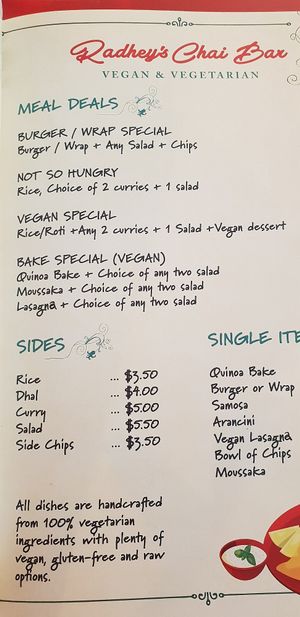 Radhey's Chai Bar
VEGAN & VEGETARIAN
MEAL DEALS
BURGER / WRAP SPECIAL
Burger / Wrap + Any Salad + Chips
NOT SO HUNGRY
Rice, Choice of 2 curries + 1 salad
VEGAN SPECIAL
Rice/Roti +Any 2 curries + 1 Salad +Vegan dessert
BAKE SPECIAL (VEGAN)
Quinoa Bake + Choice of any two salad
Moussaka + Choice of any two salad
Lasagna + Choice of any two salad
SIDES
Rice ... $3.50
Dhal ... $4.00
Curry ... $5.00
Salad ... $5.50
Side Chips ... $3.50
All dishes are handcrafted
from 100% vegetarian
ingredients with plenty of
vegan, gluten-free and raw
options.
SINGLE ITE
Quinoa Bake
Burger or Wrap
Samosa
Arancini
Vegan Lasagna
Bowl of Chips
Moussaka